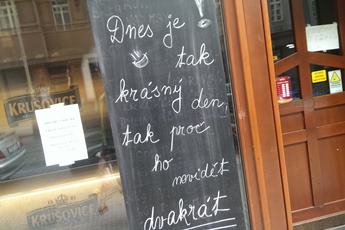 Dnes je
tak
krásný den,
tak proč
ho
nevidět
dvakrát
KRUŠOVICE
KRUŠOVICE